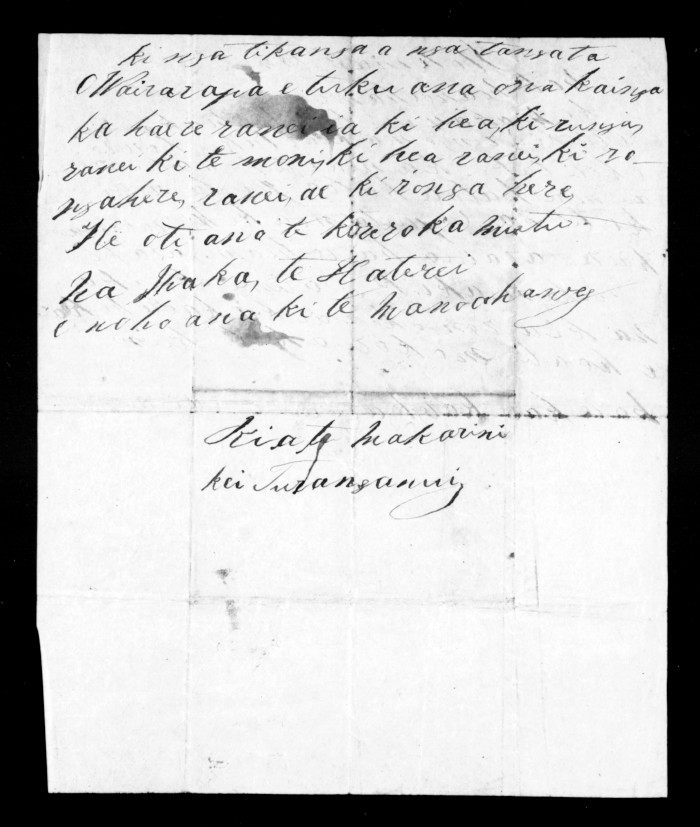 ki nga tikanga a nga tangata
O Wairarapa e tuku ana ona kainga
ka haere ranei ia ki hea, ki runga,
ranei ki te moni, ki hea ranei, ki ro-
ngahere, ranei, ae ki ronga here,
He oti ana te korero ka mutu
Na Ihaka, te Haterei
e noho ana ki te
Kia te Makarini
kei Turanganui